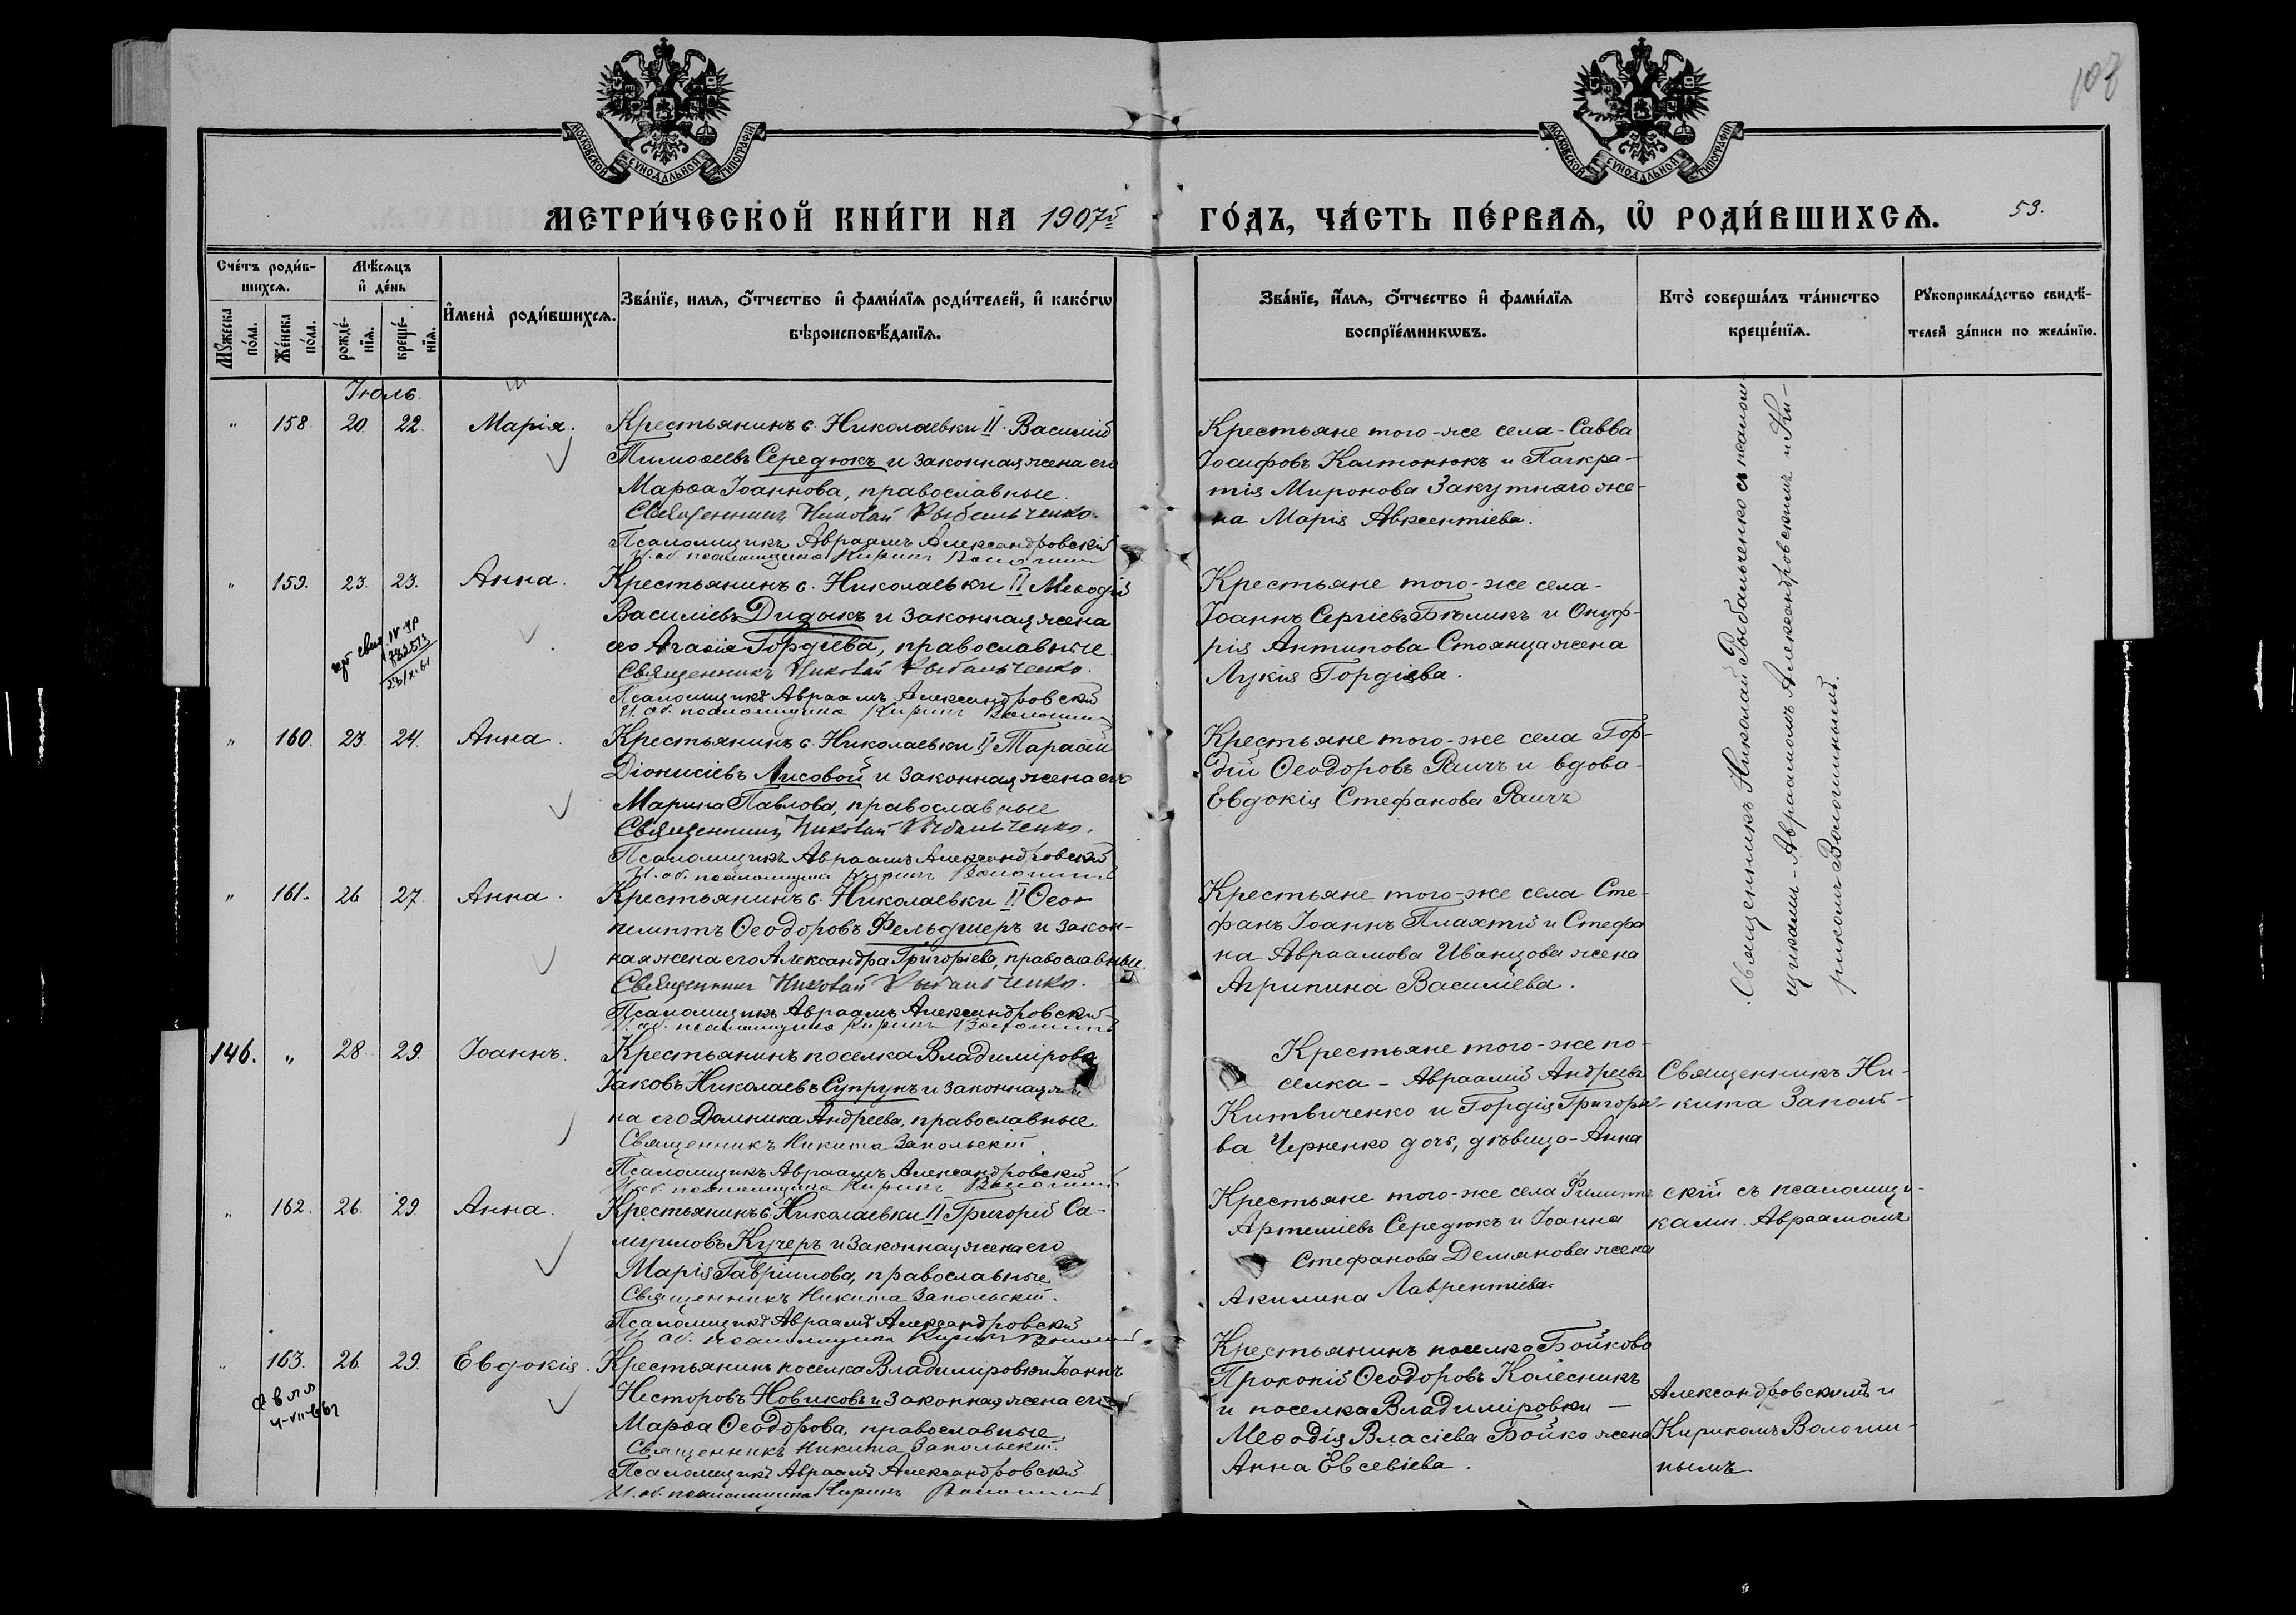 108
МОСКОВСКОЙ СѴНОДАЛЬНОЙ ТИПОГРАФІИ
МОСКОВСКОЙ СѴНОДАЛЬНОЙ ТИПОГРАФІИ
МЕТРИ́ЧЕСКОЙ КНИ́ГИ НА 1907й ГО́ДЪ, ЧА́СТЬ ПЕ́РВАѦ, Ѡ҆ РОДИ́ВШИХСѦ. 53.
Сче́тъ роди́в-
шихсѧ.
Мѣ́сѧцъ
и҆ де́нь
Мꙋ́жеска по́ла.
Же́нска по́ла.
рожде́-
нїѧ.
креще́-
нїѧ.
И҆мена̀ роди́вшихсѧ.
Зва́нїе, имѧ, ѻ҆́тчество и҆ фами́лїѧ роди́телей, и҆ како́гѡ
вѣроисповѣ́данїѧ.
Зва́нїе, и҆́мѧ, ѻ҆́тчество и҆ фами́лїѧ
воспрїе́мникѡвъ.
Кто̀ соверша́лъ та́инство
креще́нїѧ.
Рꙋкоприкла́дство свидѣ́-
телей за́писи по жела́нїю.
Іюль.
" 158. 20 22. Марія.
Крестьянинъ с. Николаевки II. Василій
Тимоѳеевъ Середюкъ и законная жена его
Марѳа Іоаннова, православные.
Священникъ Николай Рыбальченко.
Псаломщикъ Авраамъ Александровскій
И. об. псаломщика Кирикъ Волошинъ
Крестьяне того-же села - Савва
Іосифовъ Калтонюкъ и Панкра-
тія Миронова Закутняго же-
на Марія Авксентіева.
" 159. 23. 23. Анна.
782513
23/XI-61
Крестьянинъ с. Николаевки II Меѳодій
Василіевъ Дидыкъ и законная жена
его Агаѳія Гордіева, православные
Священникъ Николай Рыбальченко.
Псаломщикъ Авраамъ Александровскій
И. об. псаломщика Кирикъ Волошинъ
Крестьяне того-же села-
Іоаннъ Сергіевъ Бѣликъ и Онуф-
рія Антипова Стоянца жена
Лукія Гордіева.
" 160. 23. 24. Анна.
Крестьянинъ с. Николаевки II Тарасій
Діонисіевъ Лисовой и законная жена его
Марина Павлова, православные
Священникъ Николай Рыбальченко.
Псаломщикъ Авраамъ Александровскій
И. об. псаломщика Кирикъ Волошинъ
Крестьяне того-же села Гор-
дій Ѳеодоровъ Раичъ и вдова-
Евдокія Стефанова Раичъ
" 161. 26 27. Анна.
Крестьянинъ с. Николаевки II Ѳео-
пемптъ Ѳеодоровъ Фельдшеръ и закон-
ная жена его Александра Григоріева, православные.
Священникъ Николай Рыбальченко.
Псаломщикъ Авраамъ Александровскій
И. об. псаломщика Кирикъ Волошинъ
Крестьяне того-же села Сте-
фанъ Іоаннъ Плахтій и Стефа
на Авраамова Иванцова жена
Агрипина Василіева.
Священникъ Николай Рыбальченко съ псалом-
щиками - Авраамомъ Александровскимъ и Ки-
рикомъ Волошинымъ.
146. " 28. 29. Іоаннъ.
Крестьянинъ поселка Владимірова
Іаковъ Николаевъ Супрунъ и законная же
на его Домника Андреева, православные.
Священникъ Никита Запольскій
Псаломщикъ Авраамъ Александровскій
И. об. псаломщика Кирикъ Волошинъ
Крестьяне того-же по-
селка - Авраамій Андреевъ
Китвиченко и Гордія Григорье-
ва Черненко дочь, дѣвица - Анна
Священникъ Ни-
кита Заполь-
" 162. 26. 29. Анна.
Крестьянинъ с. Николаевки II Григорій Са-
муиловъ Кучеръ и законная жена его
Марія Гавріилова, православные
Священникъ Никита Запольскій.
Псаломщикъ Авраамъ Александровскій
И. об. псаломщика Кирикъ Волошинъ
Крестьяне того-же села Филиппъ
Артеміевъ Середюкъ и Іоанна
Стефанова Демянова жена
Акилина Лаврентіева.
скій съ псаломщи-
ками. Авраамомъ
" 163. 26. 29. Евдокія.
Крестьянинъ поселка Владимировки Іоаннъ
Несторовъ Новиковъ и законная жена его
Марѳа Ѳеодорова, православные
Священникъ Никита Запольскій.
Псаломщикъ Авраамъ Александровскій
И. об. псаломщика Кирикъ Волошинъ
Крестьянинъ поселка Бойково
Прокопій Ѳеодоровъ Колесникъ
и поселка Владиміровки —
Меѳодія Власіева Бойко жена
Анна Евсевіева.
Александровскимъ и
Кирикомъ Волоши-
нымъ